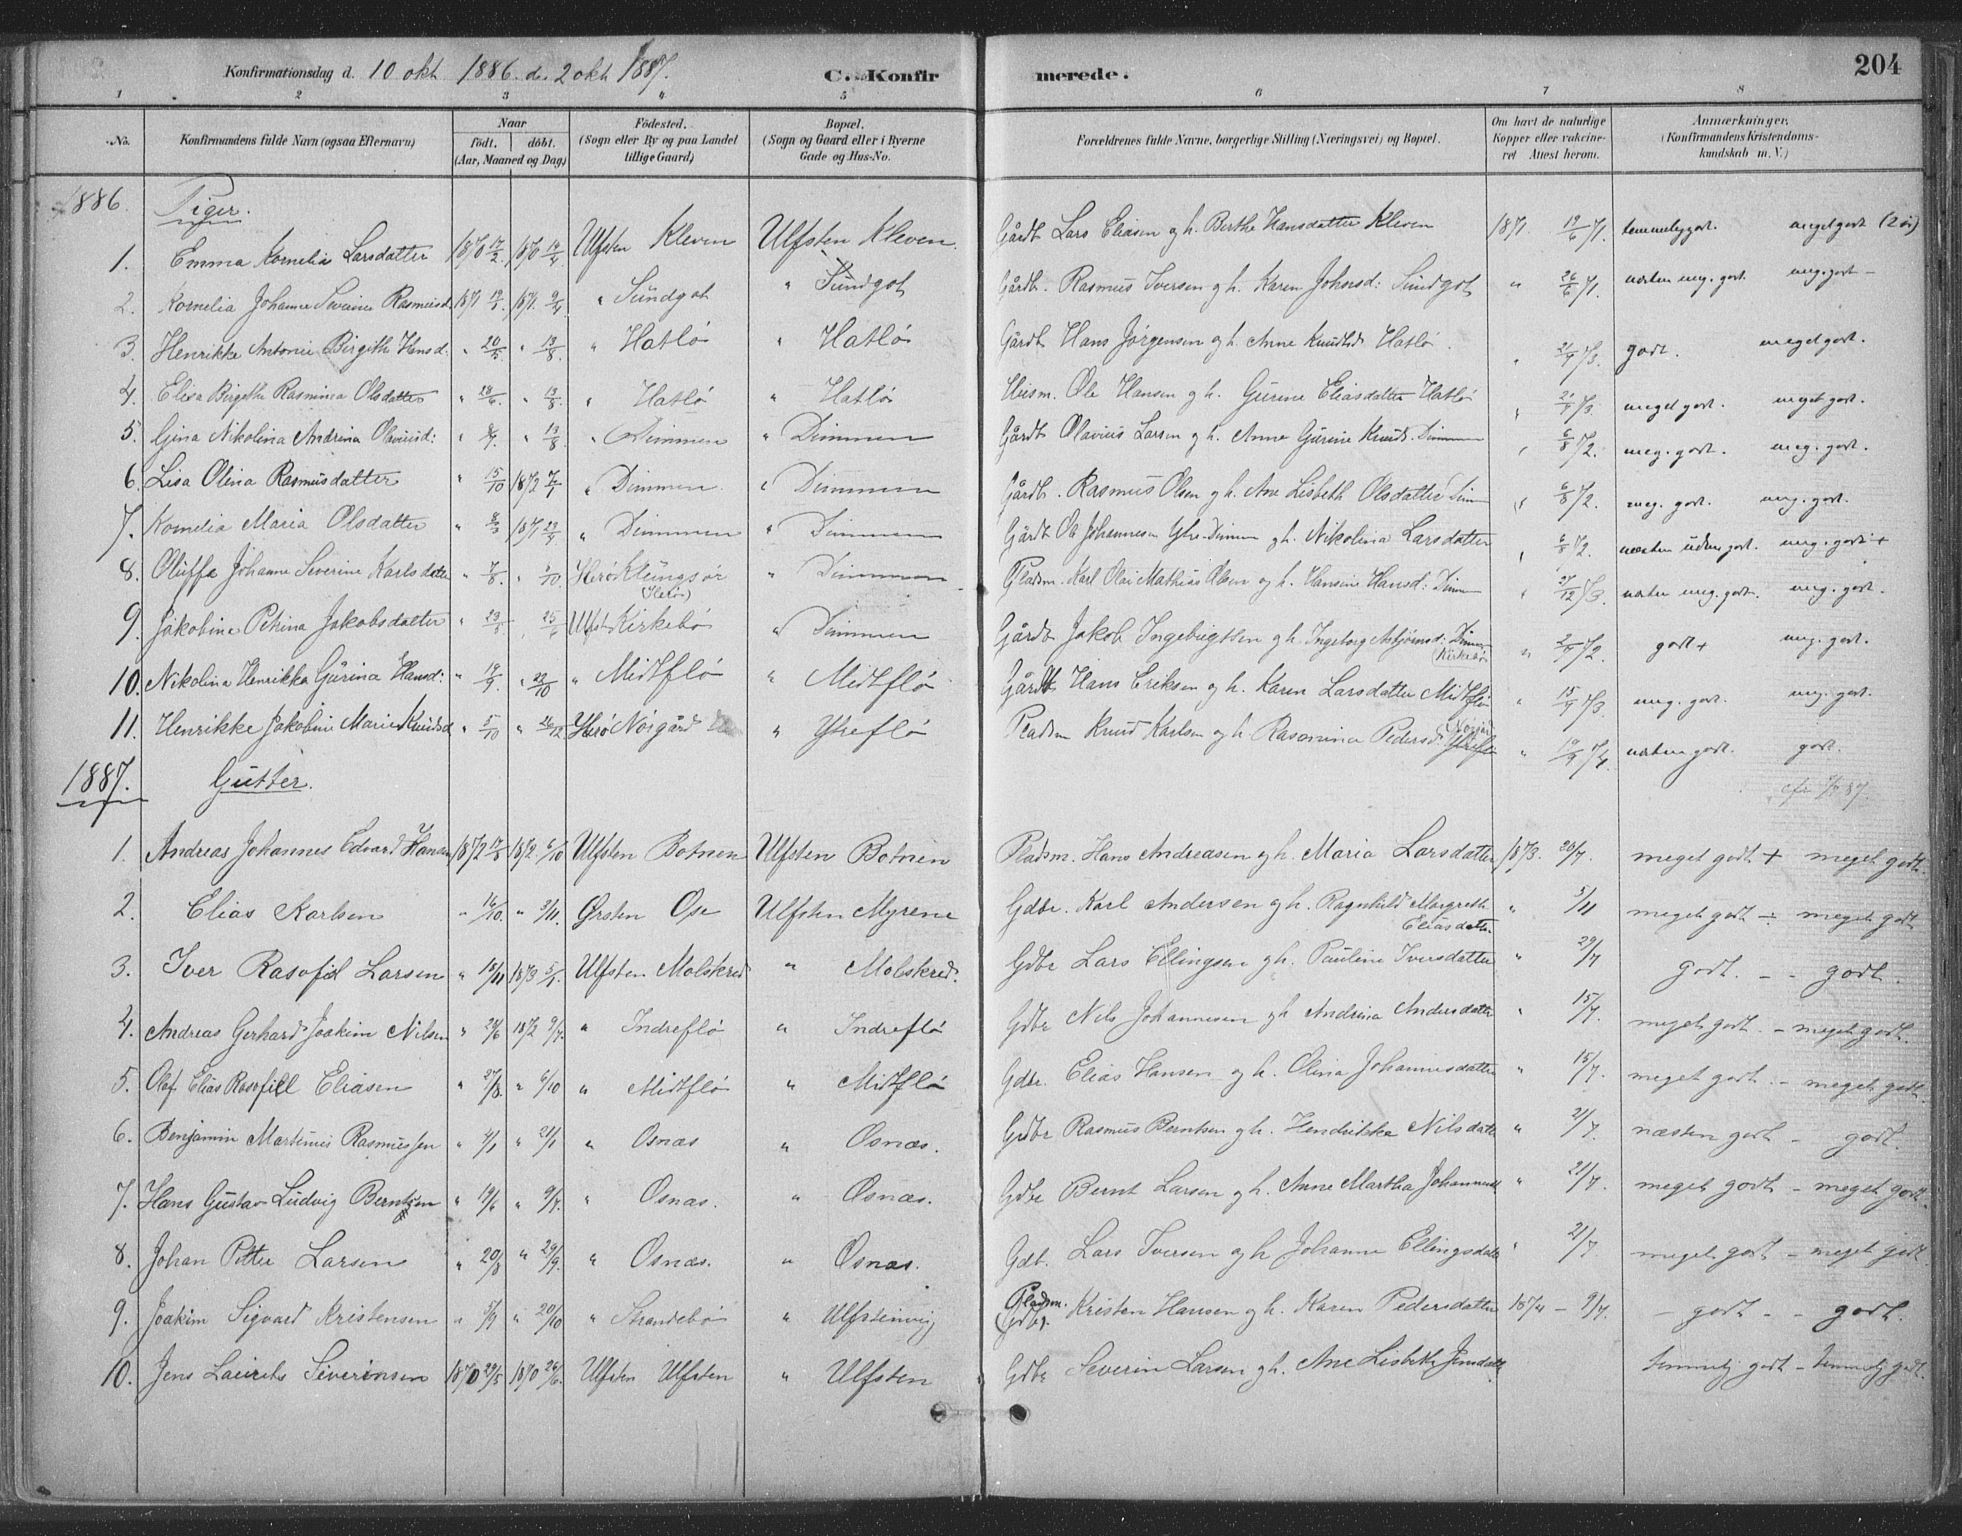 Konfirmationsdag d. 10 okt 1886. d. 2 okt 1887. C. Konfirmerede. 204
1 2 3 4 5 6 7 8
No. Konfirmandens fulde Navn (ogsaa Efternavn) Naar födt. döbt. (Aar, Maaned og Dag) Födested. (Sogn eller By og paa Landet tillige Gaard) Bopæl. (Sogn og Gaard eller i Byerne Gade og Hus-No. Forældrenes fulde Navne, borgerlige Stilling (Næringsvei) og Bopæl. Om havt de naturlige Kopper eller vakcineret Attest herom. Anmærkninger. (Konfirmandens Kristendomskundskab m. V.)
1886. Piger.
1. Emma Kornelia Larsdatter 1870 17/2 1870 14/4 Ulfsten Kleven Ulfsten Kleven. Gårdb Lars Eliasen og h. Berthe Hansdatter Kleven 1871. 19/6 71. temmeliggodt. megetgodt
2. Kornelia Johanne Severine Rasmusd " Sundgot " Sundgot Gårdb. Rasmus Iversen og h. Karen Johnsd: Sundgot " 26/6 71. næsten meg. godt. meg. godt
3. Henrikke Antonie Birgithe Hansd. " 20/5 " 13/8. " Hatlö " Hatlö Gårdb Hans Jørgensen og h. Anne Knudtsd. Hatlö. " 21/9 73 godt. megetgodt.
4. Elisa Birgithe Rasmina Olsdatter " 28/6. " 13/8. " Hatlö " Hatlö Husm. Ole Hansen og h. Gurine Eliasdatter Hatlö " 73 meget godt. meget godt.
5. Gina Nikolina Andrina Olaviusd: " 8/7. " 13/8 " Dimmen " Dimmen Gårdb Olavius Larsen og h. Anne Gurine Knuds. Dimmen " 6/8 72. meg. godt. meg. godt.
6. Lisa Olina Rasmusdatter " 15/10 1872 7/1 " Dimmen. " Dimmen Gårdb. Rasmus Olsen og h. Ane Lisbeth Olsdatter Dim " 6/8 72. meg. godt. meg. godt.
7. Kornelia Maria Olsdatter " 8/3 1871 " Dimmen " Dimmen Gårdb Ol Johannesen Ytre-Dimmen og h. Nikolina Larsdatter " 6/8 72. næsten meg. godt +
8. Oluffa Johanne Severine Karlsdatter " 7/8 " 1/10 Herö Klungsör " Dimmen Pladsm. Karl Olai Mathias Olsen og h. Hansine Hansd: Dimm " 27/12 73. næsten meg. godt. meg. godt.
9. Jakobine Petrina Jakobsdatter " 23/5 " 25/6 Ulfst Kirkebö " Dimmen Gårdb Jakob Ingebrigtsen og h. Ingeborg Asbjörnsd: Dimmen (Kirkebö " 72. godt + meg. godt.
10. Nikolina Henrikka Gurina Hansd: " 19/9. " 22/10 " Midtflö " Midtflö Gårdb Hans Eriksen og h. Karen Larsdatter Midtflö " 15/9 73 meg. godt. meg. godt.
11. Henrikke Jakobine Marie Knudsd " 5/10 " 26/12 Herö Norgård " Ytreflö Pladsm Knud Karlsen og h. Rasmina Pedersd. Ytreflö " 19/9 74. næsten godt. godt.
1887. Gutter.
1. Andreas Johannes Edvard Hansen 1872 17/8 1872. 6/10 Ulfsten Botnen Ulfsten Botnen Pladsm. Hans Andreasen og h. Maria Larsdatter 1873. 20/7. meget godt + meget godt.
2. Elias Karlsen " 16/10. " 3/11. Ørsten Ose Ulfsten Myrene Gdbr. Karl Andersen og h. Ragnhild Margrethe Eliasdatter " 5/11 meget godt ÷ meget godt
3. Iver Rasofil Larsen " 19/11 1873 5/1. Ulfsten Molskred " Molskred. Gdbr Lars Ellingsen og h. Pauline Iversdatter " 29/7 godt. - - godt.
4. Andreas Gerhard Joakim Nilsen " 28/6 1872 9/7. " Indreflö " Indreflö Gdbr Nils Johannesen og h Andrina Andersdatter " 15/7. meget godt. - meget godt.
5. Olaf Elias Rasofiel Eliasen " 27/8. " 6/10 " Midtflö " Midtflö Gdbr. Elias Hansen og h. Olina Johannesdatter " 15/7. meget godt. - meget godt.
6. Benjamin Martinus Rasmussen " 4/1 " 21/1 " Osnæs " Osnæs. Gdbr Rasmus Berntsen og h. Hendrikke Nilsdatter " 21/7. næsten godt - godt.
7. Hans Gustav Ludvig Berntsen " 19/6 " 9/7. " Osnæs. " Osnæs. Gdbr Bernt Larsen og h. Anne Martha Johannesd " 21/7. meget godt - meget godt.
8. Johan Petter Larsen " 20/8 " 29/9. " Osnæs. " Osnæs. Gdb. Lars Iversen og h Johanne Ellingsdatter " 21/7. meget godt - meget godt
9. Joakim Sigvard Kristensen " 5/9 " 20/10 " Strandebö " Ulfsteinvig Pladsm. (Gdb). Kristen Hansen og h. Karen Pedersdatter 1874 - 9/7. - godt - - godt.
10. Jens Laurits Severinsen 1870 29/5 1870 26/6. Ulfsten Ulfsten " Ulfsten Gdbr Severin Larsen og h. Ane Lisbeth Jensdatt. temmelig godt - temmelig godt.